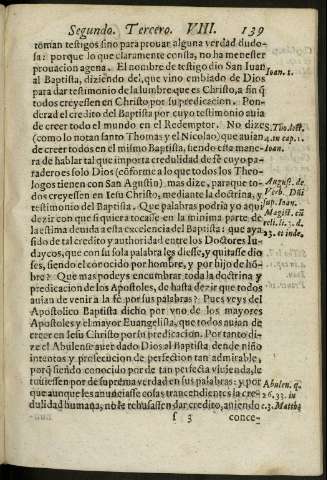 Segundo. Tercero. VIII. 139
toman testigos sino para prouar alguna verdad dudo-
sa: porque lo que claramente consta, no ha menester
prouacion agena. El nombre de testigo dio San Iuan
al Baptista, diziendo del, que vino embiado de Dios
para dar testimonio de la lumbre que es Christo, a fin q̃
todos creyessen en Christo por su predicacion. Pon-
derad el credito del Baptista por cuyo testimonio auia
de creer todo el mundo en el Redemptor. No dize
(como lo notan santo Thomas y el Nicolao) que auian
de creer todos en el mismo Baptista, siendo esta mane-
ra de hablar tal que importa credulidad de fè cuyo pa-
radero es solo Dios (cõforme a lo que todos los Theo-
logos tienen con San Agustin) mas dize, para que to-
dos creyessen en Iesu Christo, mediante la doctrina, y
testimonio del Baptista. Que palabras podria yo aqui
dezir con que si quiera tocasse en la minima parte de
la estima deuida a esta excelencia del Baptista: que aya
sido de tal credito y authoridad entre los Doctores Iu-
daycos, que con su sola palabra les diesse, y quitasse dio
ses, siendo el conocido por hombre, y por hijo de hõ-
bre? Que mas podeys encumbrar toda la doctrina y
predicacion de los Apostoles, de hasta dezir que todos
auian de venir a la fè por sus palabras? Pues veys del
Apostolico Baptista dicho por vno de los mayores
Apostoles y el mayor Euangelista, que todos auian de
creer en Iesu Christo por su predicacion. Por tanto di-
ze el Abulense auer dado Dios al Baptista dende niño
intentos y prosecucion de perfection tan admirable,
porq̃ siendo conocido por de tan perfecta viuienda, le
tuuiessen por de suprema verdad en sus palabras: y por
que aunque les anunciasse cosas trancendientes la cre
dulidad humana, no le rehusassen dar credito, auiendo
f 3 conce-
Ioan. 1.
S. Tho. &
4. in cap. 1.
Ioan.
August. de
Verb. Dñi
sup. Ioan.
Magist. cũ
reli. li. 3. d.
23. et inde.
Abulen. q.
26. 33. in
c. 3. Matthę